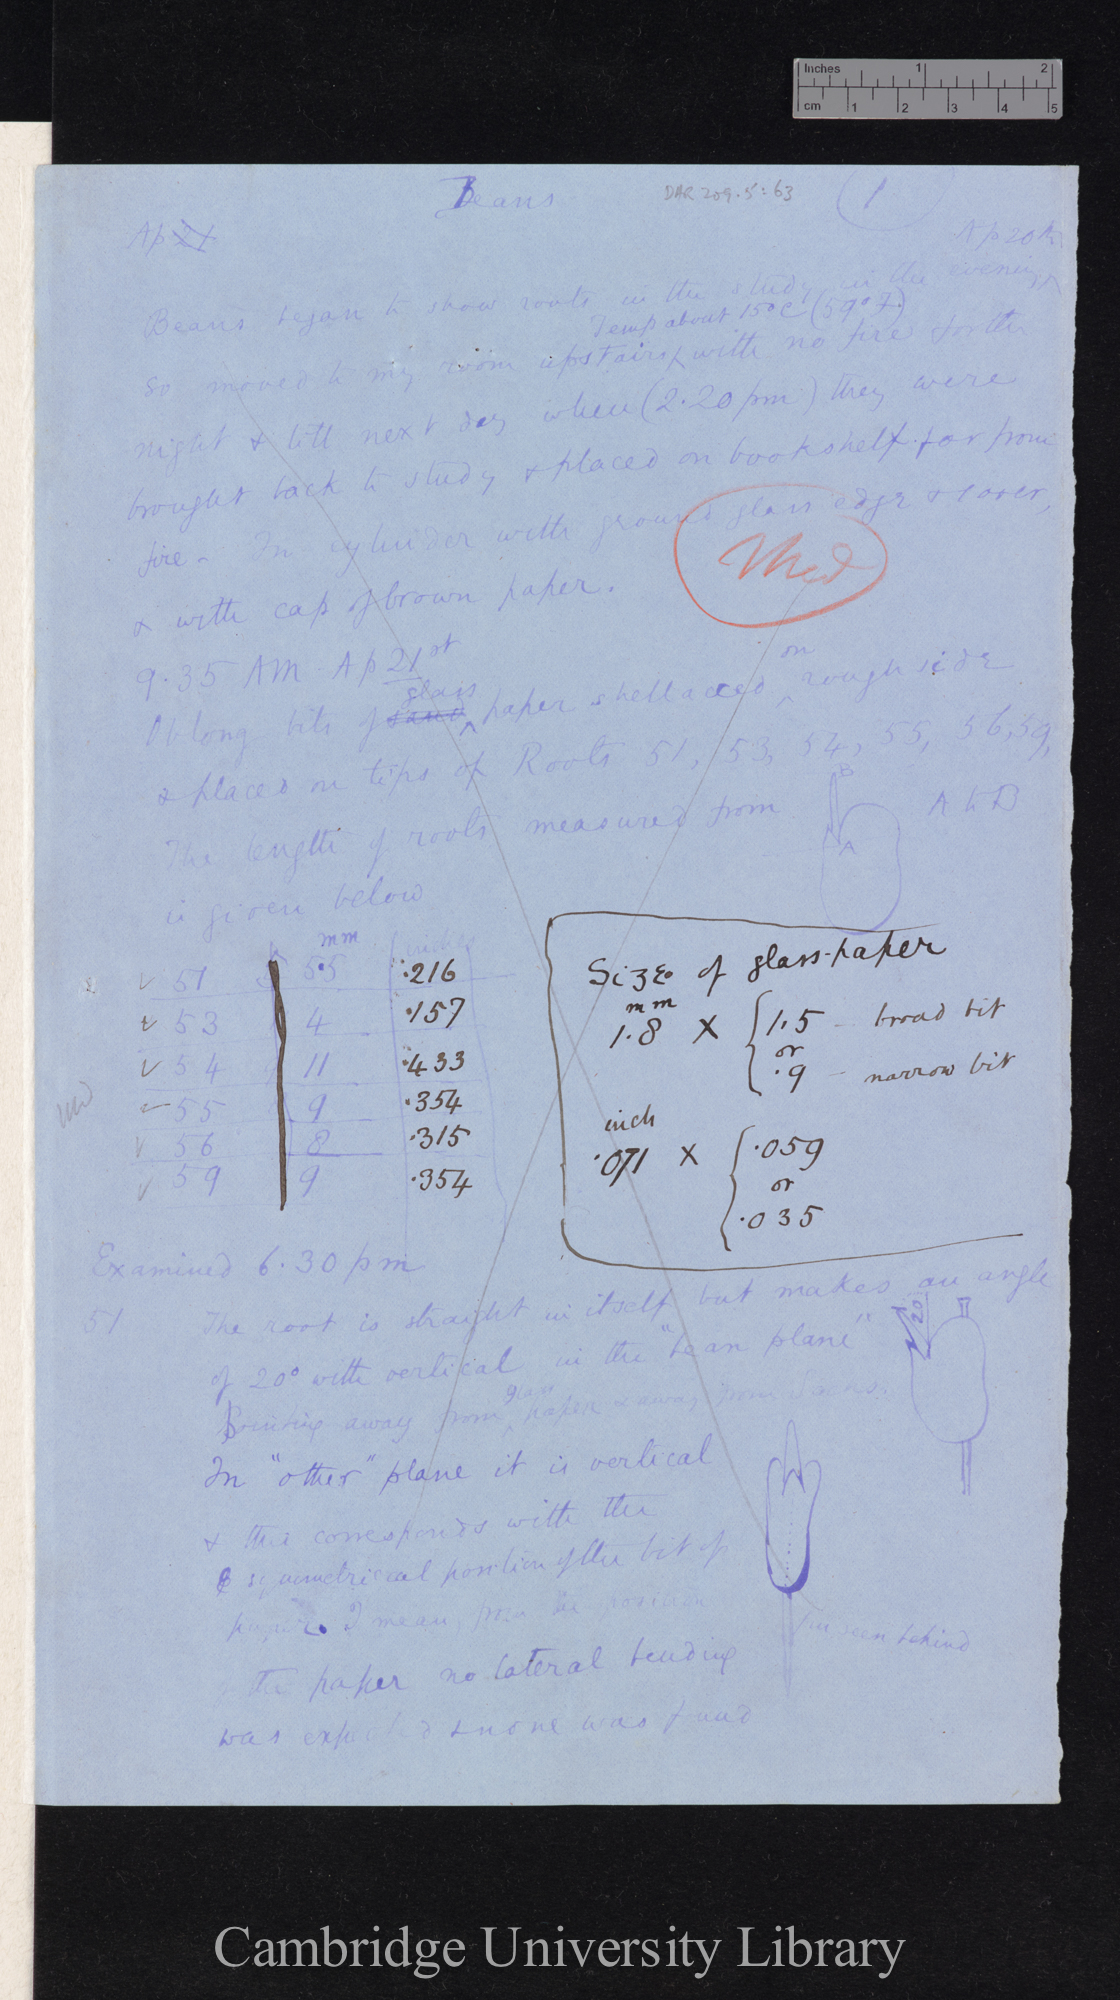 Inches 1 2
cm 1 2 3 4 5
Beans
DAR 209.5:63
1
Ap 21
Ap 20th
Beans began to show roots in the study in the evening
Temp about 15°C (59°F.)
So moved to my room upstairs, with no fire for the
night & till next day when (2.20 pm) they were
brought back to study & placed on bookshelf far from
fire - In cylinder with ground glass edge & cover,
& with cap of brown paper.
Used
9.35 AM Ap 21st
glass
on
Oblong bits of sand paper shellaced rough side
& placed on tips of Roots 51, 53, 54, 55, 56, 59,
B
The length of roots measured from A to B
A
is given below
mm inches
51 5.5 .216
53 4 .157
54 11 .433
55 9 .354
56 8 .315
59 9 .354
Used
Size of glass-paper
mm
1.8 × { 1.5 - broad bit
or
.9 - narrow bit
inch
.071 × { .059
or
.035
Examined 6.30 pm
51 The root is straight in itself but makes an angle
20
of 20° with vertical in the "bean plane"
glass
Pointing away from paper & away from
In "other" plane it is vertical
& this corresponds with the
symmetrical position of the bit of
paper. I mean, from the position
of the paper no lateral bending
seen behind
was expected & none was found
Cambridge University Library